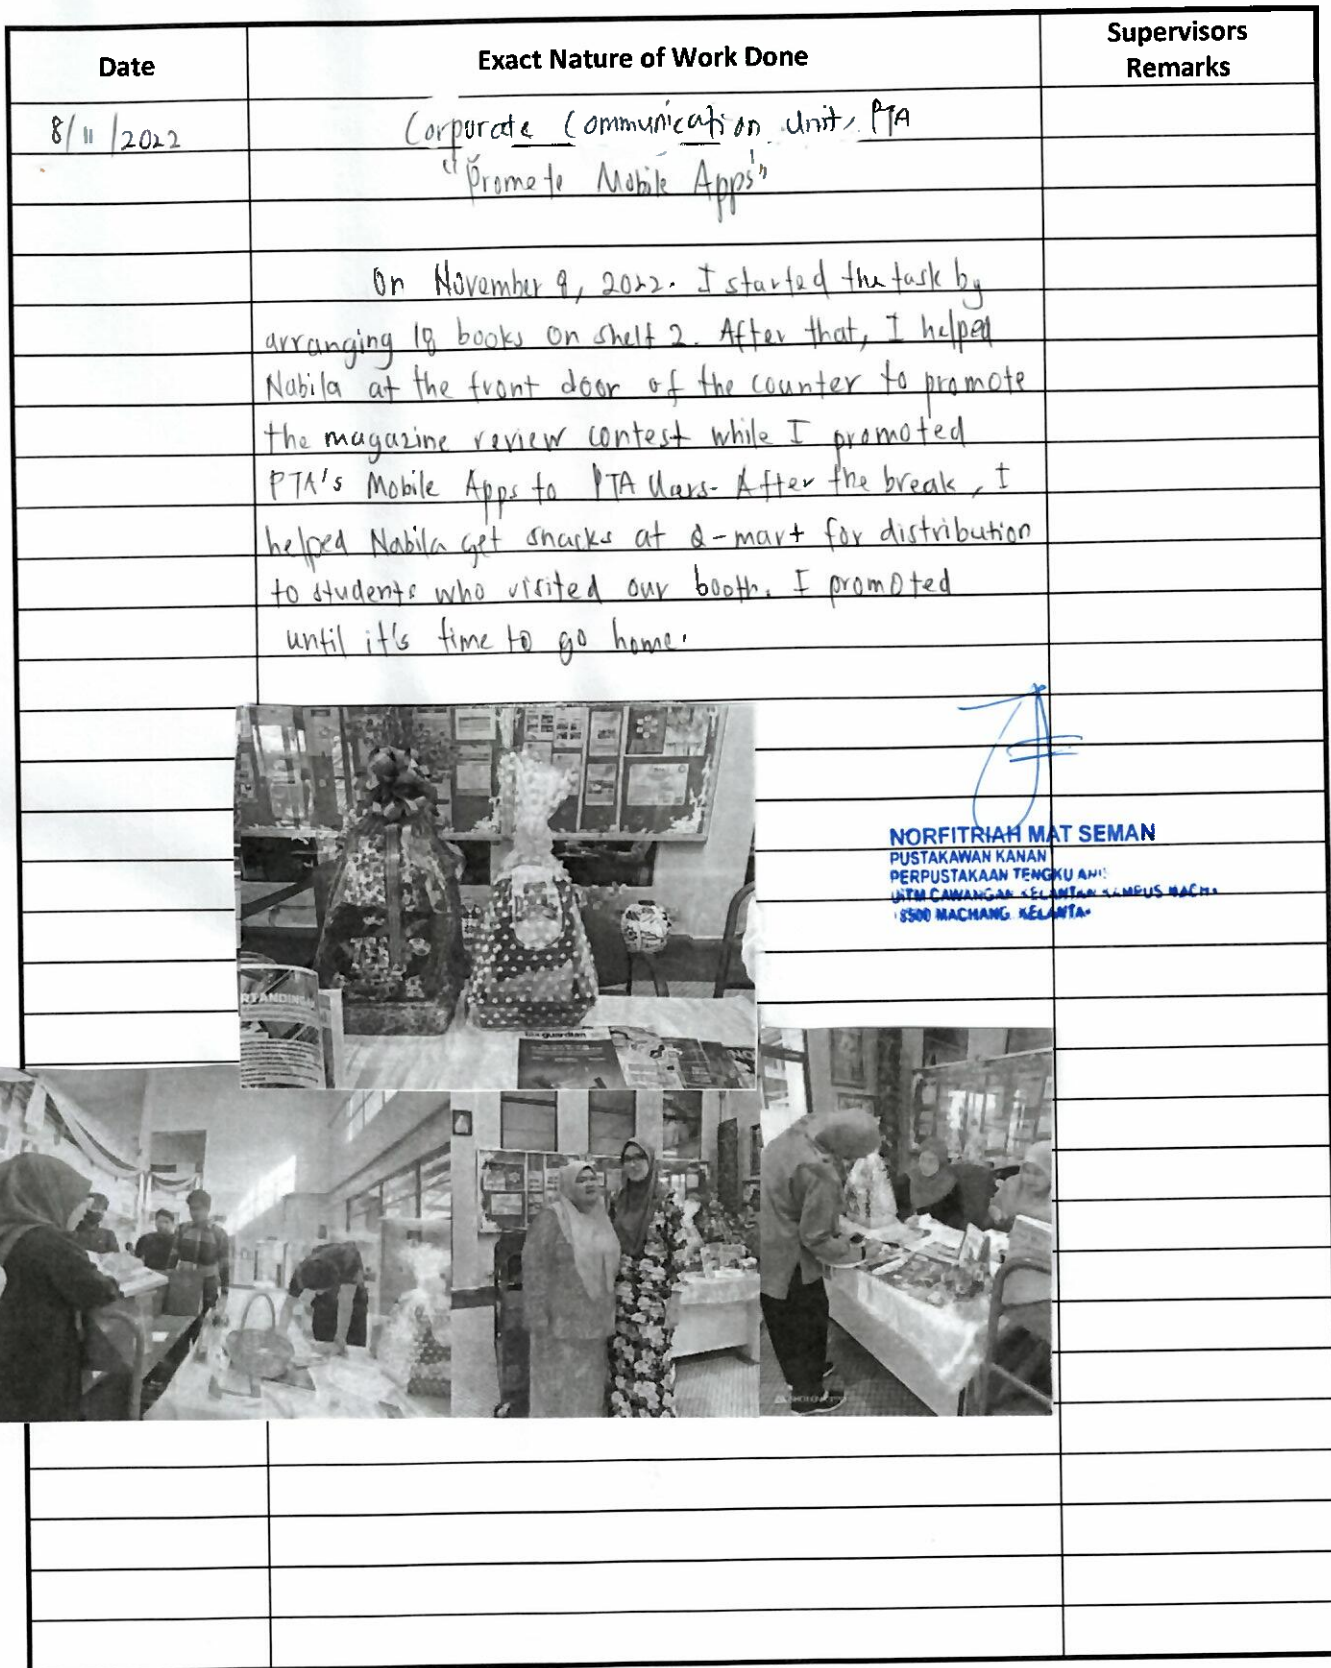 Date
Exact Nature of Work Done
Supervisors
Remarks
8/11/2022
Corporate Communication Unit, PTA
"Promote Mobile Apps"
On November 8, 2022. I started the task by
arranging 18 books on shelf 2. After that, I helped
Nabila at the front door of the counter to promote
the magazine review contest while I promoted
PTA's Mobile Apps to PTA Users. After the break, I
helped Nabila get snacks at Q-mart for distribution
to students who visited our booth. I promoted
until it's time to go home.
NORFITRIAH MAT SEMAN
PUSTAKAWAN KANAN
PERPUSTAKAAN TENGKU
UITM CAWANGAN KELANTAN KAMPUS
18500 MACHANG KELANTAN
RTANDINGA
guardian